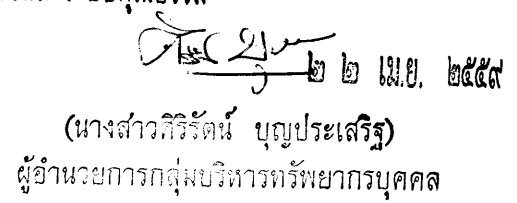 ๒ ๒ เม.ย. ๒๕๕๙
(นางสาวศิริรัตน์ บุญประเสริฐ)
ผู้อำนวยการกลุ่มบริหารทรัพยากรบุคคล